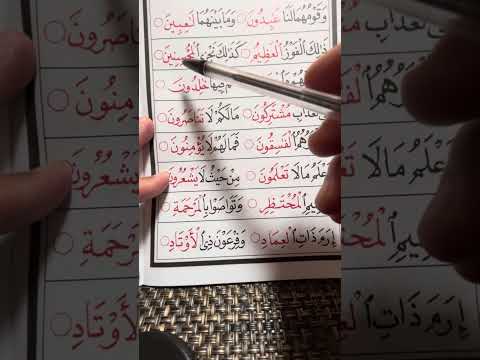 وَقَوْمُهُمَا لَنَا عَٰبِدُونَ ○ وَمَا بَيْنَهُمَا لَٰعِبِينَ ○
ذَٰلِكَ ٱلْفَوْزُ ٱلْعَظِيمُ ○ كَذَٰلِكَ نَجْزِي ٱلْمُحْسِنِينَ ○
فِيهَا خَٰلِدُونَ ○
ٱلْعَذَابِ مُشْتَرِكُونَ ○ مَا لَكُمْ لَا تَنَاصَرُونَ ○
ٱلْفَٰسِقُونَ ○ فَمَا لَهُمْ لَا يُؤْمِنُونَ ○
أَعْلَمُ مَا لَا تَعْلَمُونَ ○ مِنْ حَيْثُ لَا يَشْعُرُونَ ○
ٱلْمُحْتَظِرِ ○ وَتَوَاصَوْا۟ بِٱلْمَرْحَمَةِ ○
إِرَمَ ذَاتِ ٱلْعِمَادِ ○ وَفِرْعَوْنَ ذِي ٱلْأَوْتَادِ ○